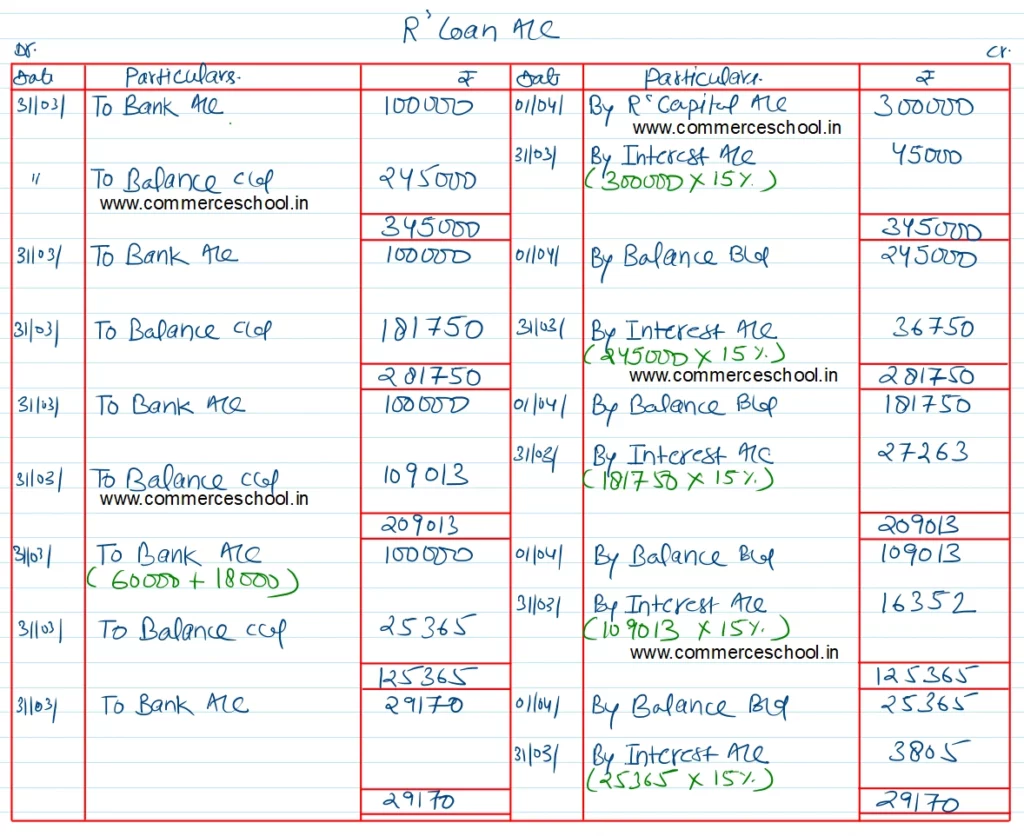 R's Loan A/c
Dr. Cr.
Date Particulars. ₹ Date Particulars. ₹
31/03/ To Bank A/c 100000 01/04/ By R's Capital A/c 300000
www.commerceschool.in
31/03/ By Interest A/c 45000
" To Balance c/d 245000 (300000 x 15%.)
www.commerceschool.in
345000 345000
31/03/ To Bank A/c 100000 01/04/ By Balance B/d 245000
31/03/ To Balance c/d 181750 31/03/ By Interest A/c 36750
(245000 x 15%.)
281750 www.commerceschool.in 281750
31/03/ To Bank A/c 100000 01/04/ By Balance B/d 181750
31/03/ By Interest A/c 27263
31/03/ To Balance c/d 109013 (181750 x 15%.)
www.commerceschool.in
209013 209013
31/03/ To Bank A/c 100000 01/04/ By Balance B/d 109013
(60000 + 18000)
31/03/ By Interest A/c 16352
31/03/ To Balance c/d 25365 (109013 x 15%.)
www.commerceschool.in
125365 125365
31/03/ To Bank A/c 29170 01/04/ By Balance B/d 25365
31/03/ By Interest A/c 3805
(25365 x 15%.)
29170 29170